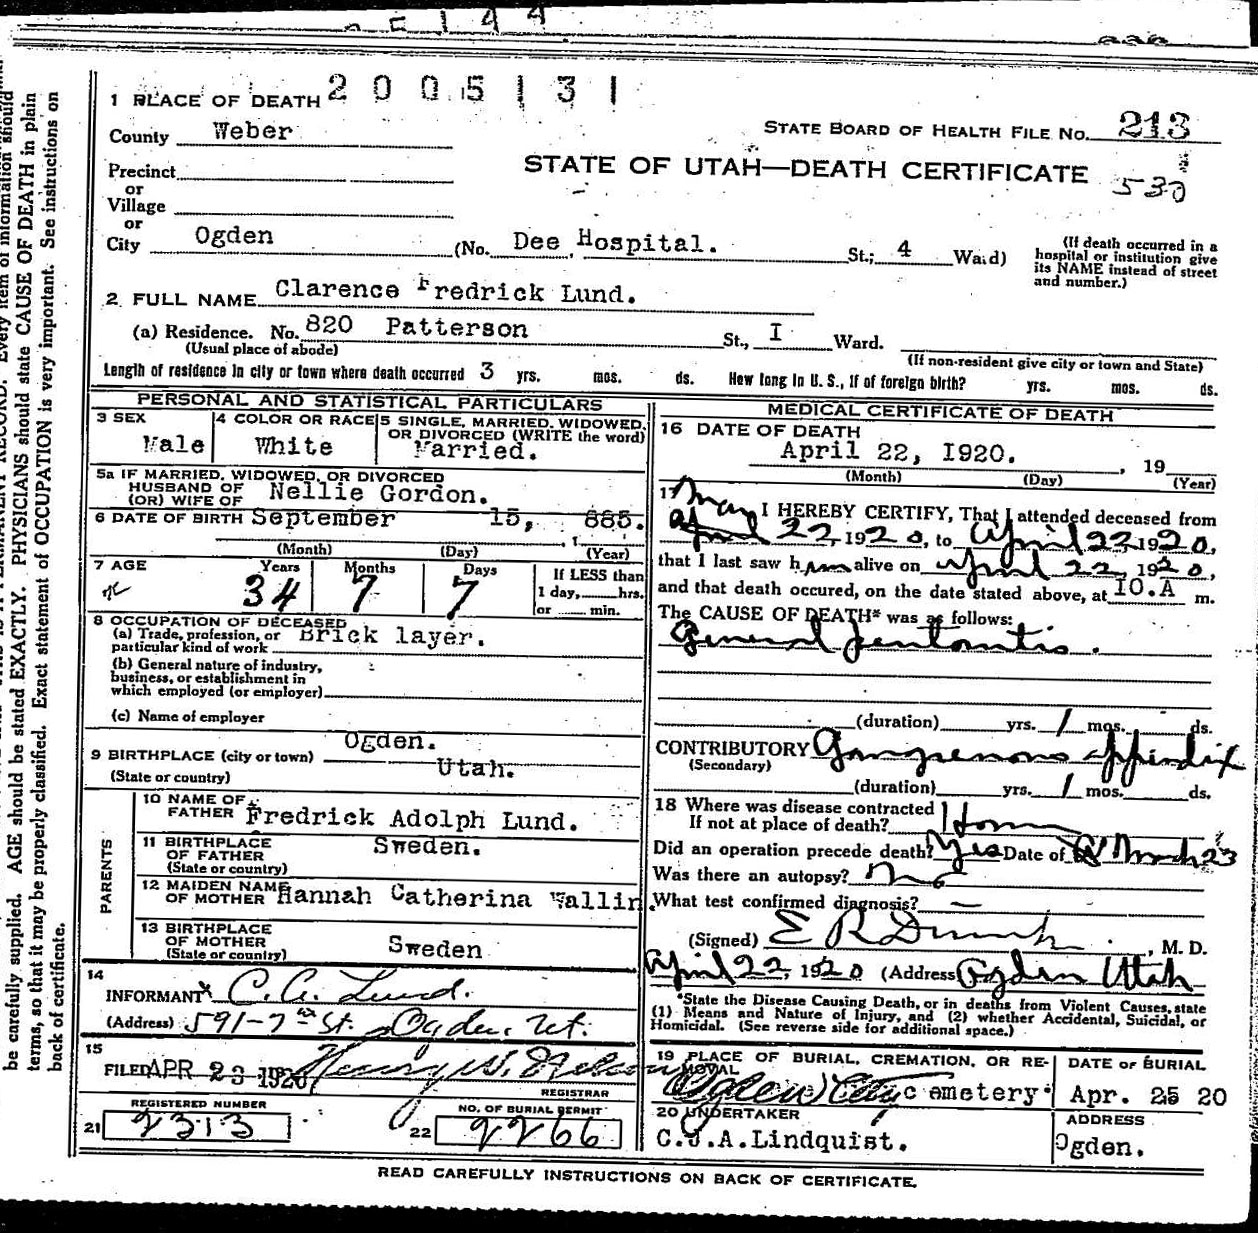 2005131
1 PLACE OF DEATH
County Weber
STATE BOARD OF HEALTH FILE NO. 213
STATE OF UTAH—DEATH CERTIFICATE
530
Precinct
or
Village
or
City Ogden (No. Dee Hospital. St.; 4 Ward)
(If death occurred in a
hospital or institution give
its NAME instead of street
and number.)
2. FULL NAME Clarence Fredrick Lund.
(a) Residence. No. 820 Patterson St., I Ward.
(Usual place of abode)
(If non-resident give city or town and State)
Length of residence in city or town where death occurred 3 yrs. mos. ds. How long in U. S., if of foreign birth? yrs. mos. ds.
PERSONAL AND STATISTICAL PARTICULARS
3 SEX
Male
4 COLOR OR RACE
White
5 SINGLE, MARRIED, WIDOWED,
OR DIVORCED (WRITE the word)
Married.
5a IF MARRIED, WIDOWED, OR DIVORCED
HUSBAND OF
(OR) WIFE OF Nellie Gordon.
6 DATE OF BIRTH September 15, 885.
(Month) (Day) 1 (Year)
7 AGE Years Months Days
34 7 7
If LESS than
1 day, hrs.
or min.
8 OCCUPATION OF DECEASED
(a) Trade, profession, or
particular kind of work Brick layer.
(b) General nature of industry,
business, or establishment in
which employed (or employer)
(c) Name of employer
9 BIRTHPLACE (city or town) Ogden.
(State or country) Utah.
PARENTS
10 NAME OF
FATHER Fredrick Adolph Lund.
11 BIRTHPLACE
OF FATHER
(State or country) Sweden.
12 MAIDEN NAME
OF MOTHER Hannah Catherina Wallin
13 BIRTHPLACE
OF MOTHER
(State or country) Sweden
14
INFORMANT C. A. Lund.
(Address) 591-7th St. Ogden, Ut.
15
FILED APR 23 1920
REGISTRAR
REGISTERED NUMBER
21 2313
NO. OF BURIAL PERMIT
22 2266
MEDICAL CERTIFICATE OF DEATH
16 DATE OF DEATH
April 22, I920. , 19
(Month) (Day) (Year)
17 I HEREBY CERTIFY, That I attended deceased from
Mar
April 22, 1920, to April 22, 1920,
that I last saw him alive on April 22, 1920,
and that death occured, on the date stated above, at 10.A m.
The CAUSE OF DEATH* was as follows:
General
(duration) yrs. 1 mos. ds.
CONTRIBUTORY Gangrenous appendix
(Secondary)
(duration) yrs. 1 mos. ds.
18 Where was disease contracted
If not at place of death? Home
Did an operation precede death? Yes Date of March 23
Was there an autopsy? No
What test confirmed diagnosis? —
(Signed) E R , M. D.
April 22, 1920 (Address Ogden Utah
*State the Disease Causing Death, or in deaths from Violent Causes, state
(1) Means and Nature of Injury, and (2) whether Accidental, Suicidal, or
Homicidal. (See reverse side for additional space.)
19 PLACE OF BURIAL, CREMATION, OR RE-
MOVAL
Ogden City cemetery.
DATE OF BURIAL
Apr. 25 20
20 UNDERTAKER
C.J.A.Lindquist.
ADDRESS
Ogden.
READ CAREFULLY INSTRUCTIONS ON BACK OF CERTIFICATE.
be carefully supplied. AGE should be stated EXACTLY. PHYSICIANS should state CAUSE OF DEATH in plain
terms, so that it may be properly classified. Exact statement of OCCUPATION is very important. See instructions on
back of certificate.